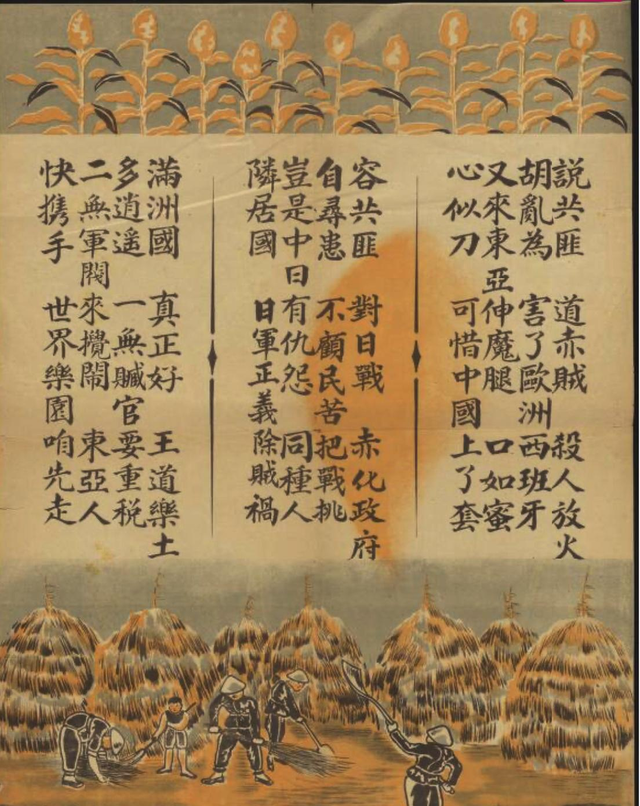 說共匪 道赤賊 殺人放火
胡亂為 害了歐洲西班牙
又來東亞伸魔腿 口如蜜
心似刀 可惜中國上了套
容共匪 對日戰 赤化政府
自尋患 不顧民苦把戰挑
豈是中日有仇怨 同種人
隣居國 日軍正義除賊禍
滿洲國 真正好 王道樂土
多逍遥 一無贓官要重税
二無軍閥來攪鬧 東亞人
快携手 世界樂園咱先走